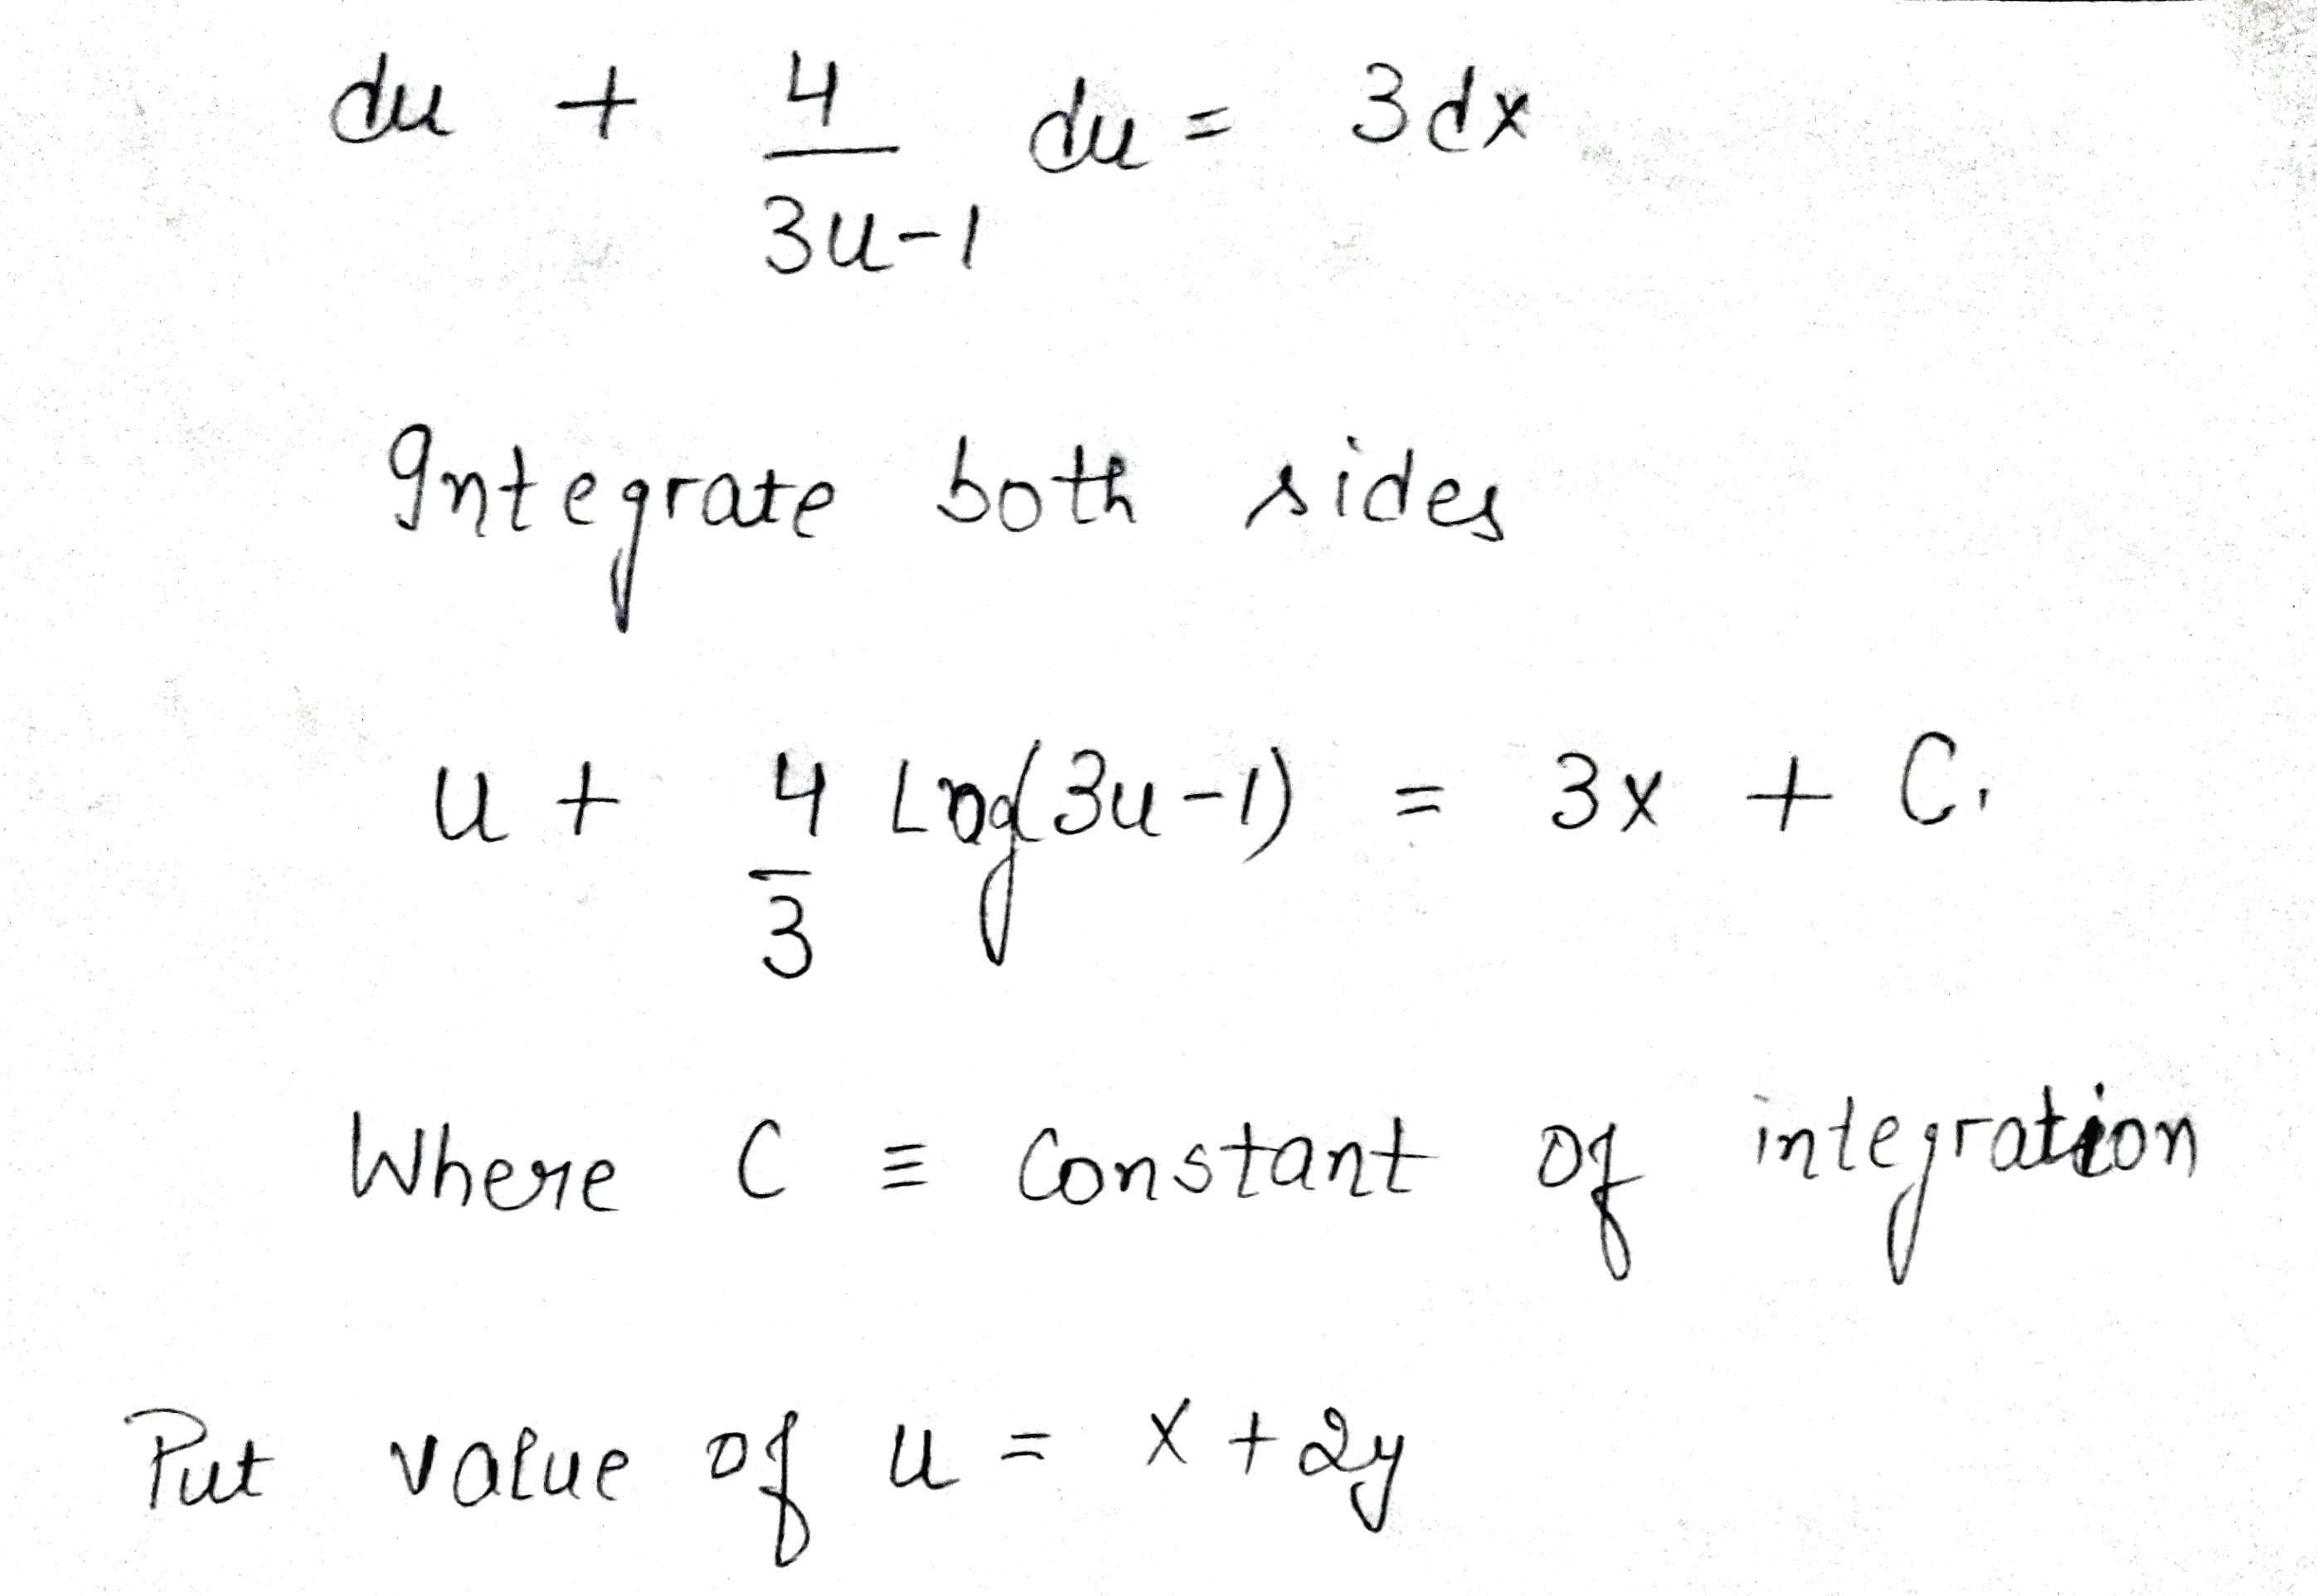 du + 4/(3u-1) du = 3dx
Integrate both sides
u + 4/3 Log(3u-1) = 3x + C.
Where C ≡ Constant of integration
Put value of u = x + 2y